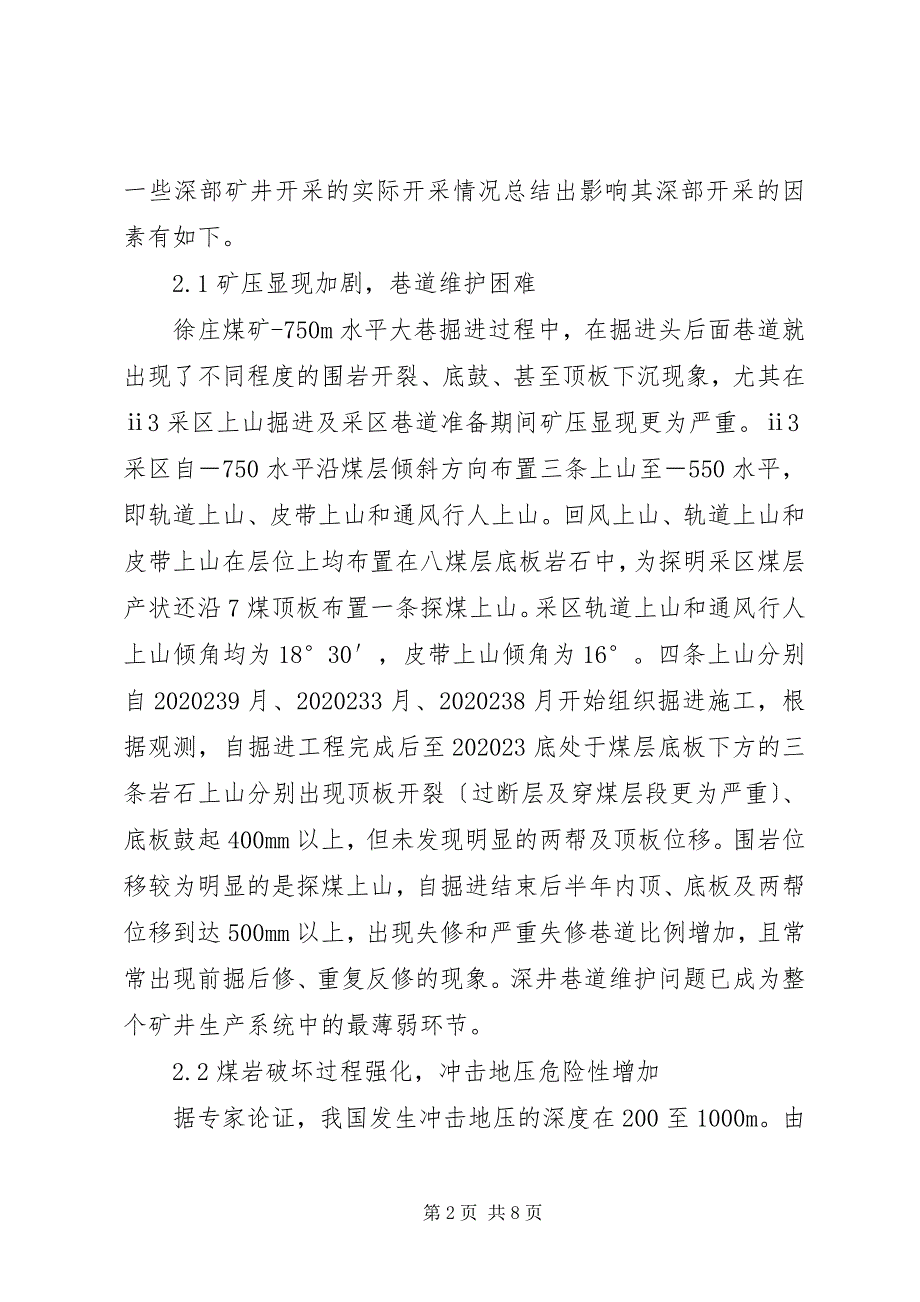 一些深部矿井开采的实际开采情况总结出影响其深部开采的因
素有如下。
2.1 矿压显现加剧，巷道维护困难
徐庄煤矿-750m 水平大巷掘进过程中，在掘进头后面巷道就
出现了不同程度的围岩开裂、底鼓、甚至顶板下沉现象，尤其在
ⅱ3 采区上山掘进及采区巷道准备期间矿压显现更为严重。ⅱ3
采区自－750 水平沿煤层倾斜方向布置三条上山至－550 水平，
即轨道上山、皮带上山和通风行人上山。回风上山、轨道上山和
皮带上山在层位上均布置在八煤层底板岩石中，为探明采区煤层
产状还沿 7 煤顶板布置一条探煤上山。采区轨道上山和通风行人
上山倾角均为 18°30′，皮带上山倾角为 16°。四条上山分别
自 2020239 月、2020233 月、2020238 月开始组织掘进施工，根
据观测，自掘进工程完成后至 202023 底处于煤层底板下方的三
条岩石上山分别出现顶板开裂〔过断层及穿煤层段更为严重〕、
底板鼓起 400mm 以上，但未发现明显的两帮及顶板位移。围岩位
移较为明显的是探煤上山，自掘进结束后半年内顶、底板及两帮
位移到达 500mm 以上，出现失修和严重失修巷道比例增加，且常
常出现前掘后修、重复反修的现象。深井巷道维护问题已成为整
个矿井生产系统中的最薄弱环节。
2.2 煤岩破坏过程强化，冲击地压危险性增加
据专家论证，我国发生冲击地压的深度在 200 至 1000m。由
第 2 页 共 8 页